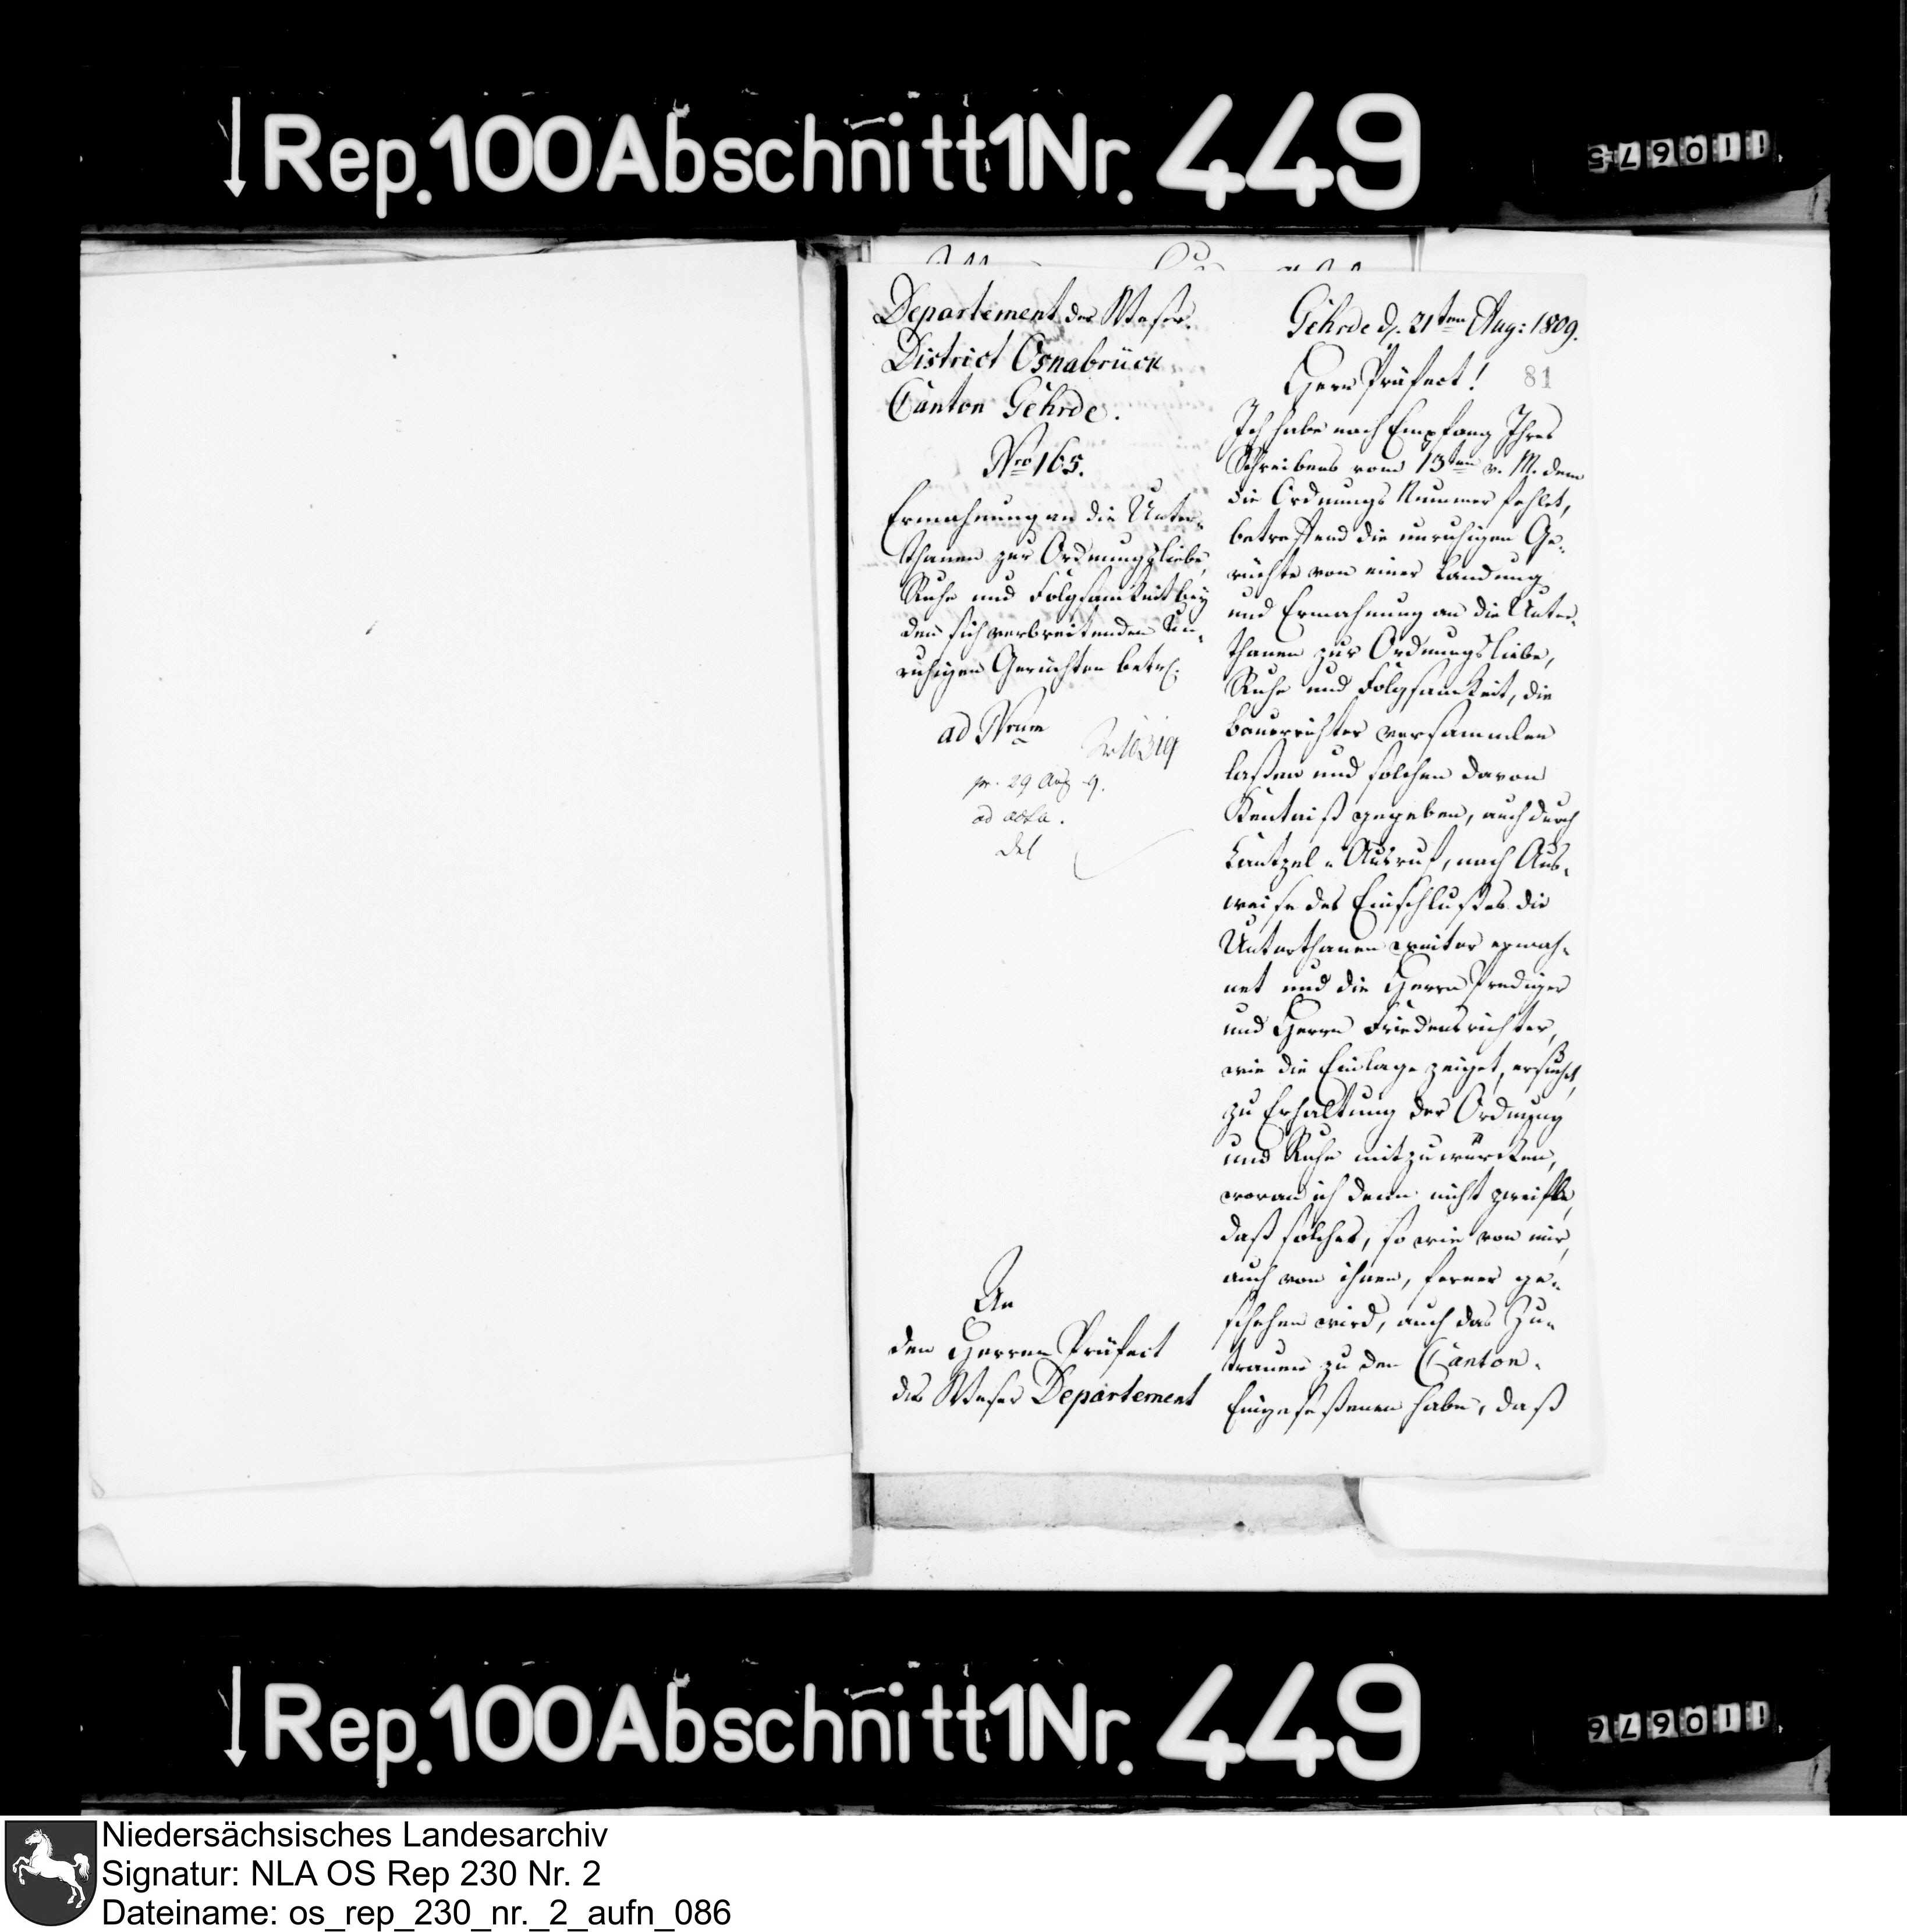 Rep. 100 Abschnitt 1 Nr. 449
Departement der Weser.
District Osnabrück
Canton Gehrde.
Nro 165.
Ermahnung an die Unter-
thanen zur Ordnungsliebe,
Ruhe und Folgsamkeit bey
den sich verbreitenden Un-
ruhigen Gerüchten betr.
ad Num
pr. 29 Aug 9.
ad acta.
An
den Herren Präfect
des Weser Departement
Gehrde d. 21ten Aug: 1809.
Herr Präfect!
81
Ich habe nach Empfang Ihres
Schreibens vom 13ten v. M. dem
die Ordnungs Nummer fehlet,
betreffend die unruhigen Ge-
rüchte von einer Landung
und Ermahnung an die Unter-
thanen zur Ordnungsliebe,
Ruhe und Folgsamkeit, die
Bauerrichter versammlen
laßen und solchen davon
Kentniß gegeben, auch durch
Cantzel-Ausruf, nach Aus-
weise des Einschlußes die
Unterthanen weiter ermah-
net und die Herrn Prediger
und Herrn Friedensrichter,
wie die Einlage zeiget, ersucht,
zu Erhaltung der Ordnung
und Ruhe mitzuwürken,
woran ich denn nicht zweifle,
daß solches, so wie von mir,
auch von ihnen, ferner ge-
schehen wird, auch das Zu-
trauen zu den Canton-
Eingeseßenen habe, daß
Rep. 100 Abschnitt 1 Nr. 449
Niedersächsisches Landesarchiv
Signatur: NLA OS Rep 230 Nr. 2
Dateiname: os_rep_230_nr._2_aufn_086